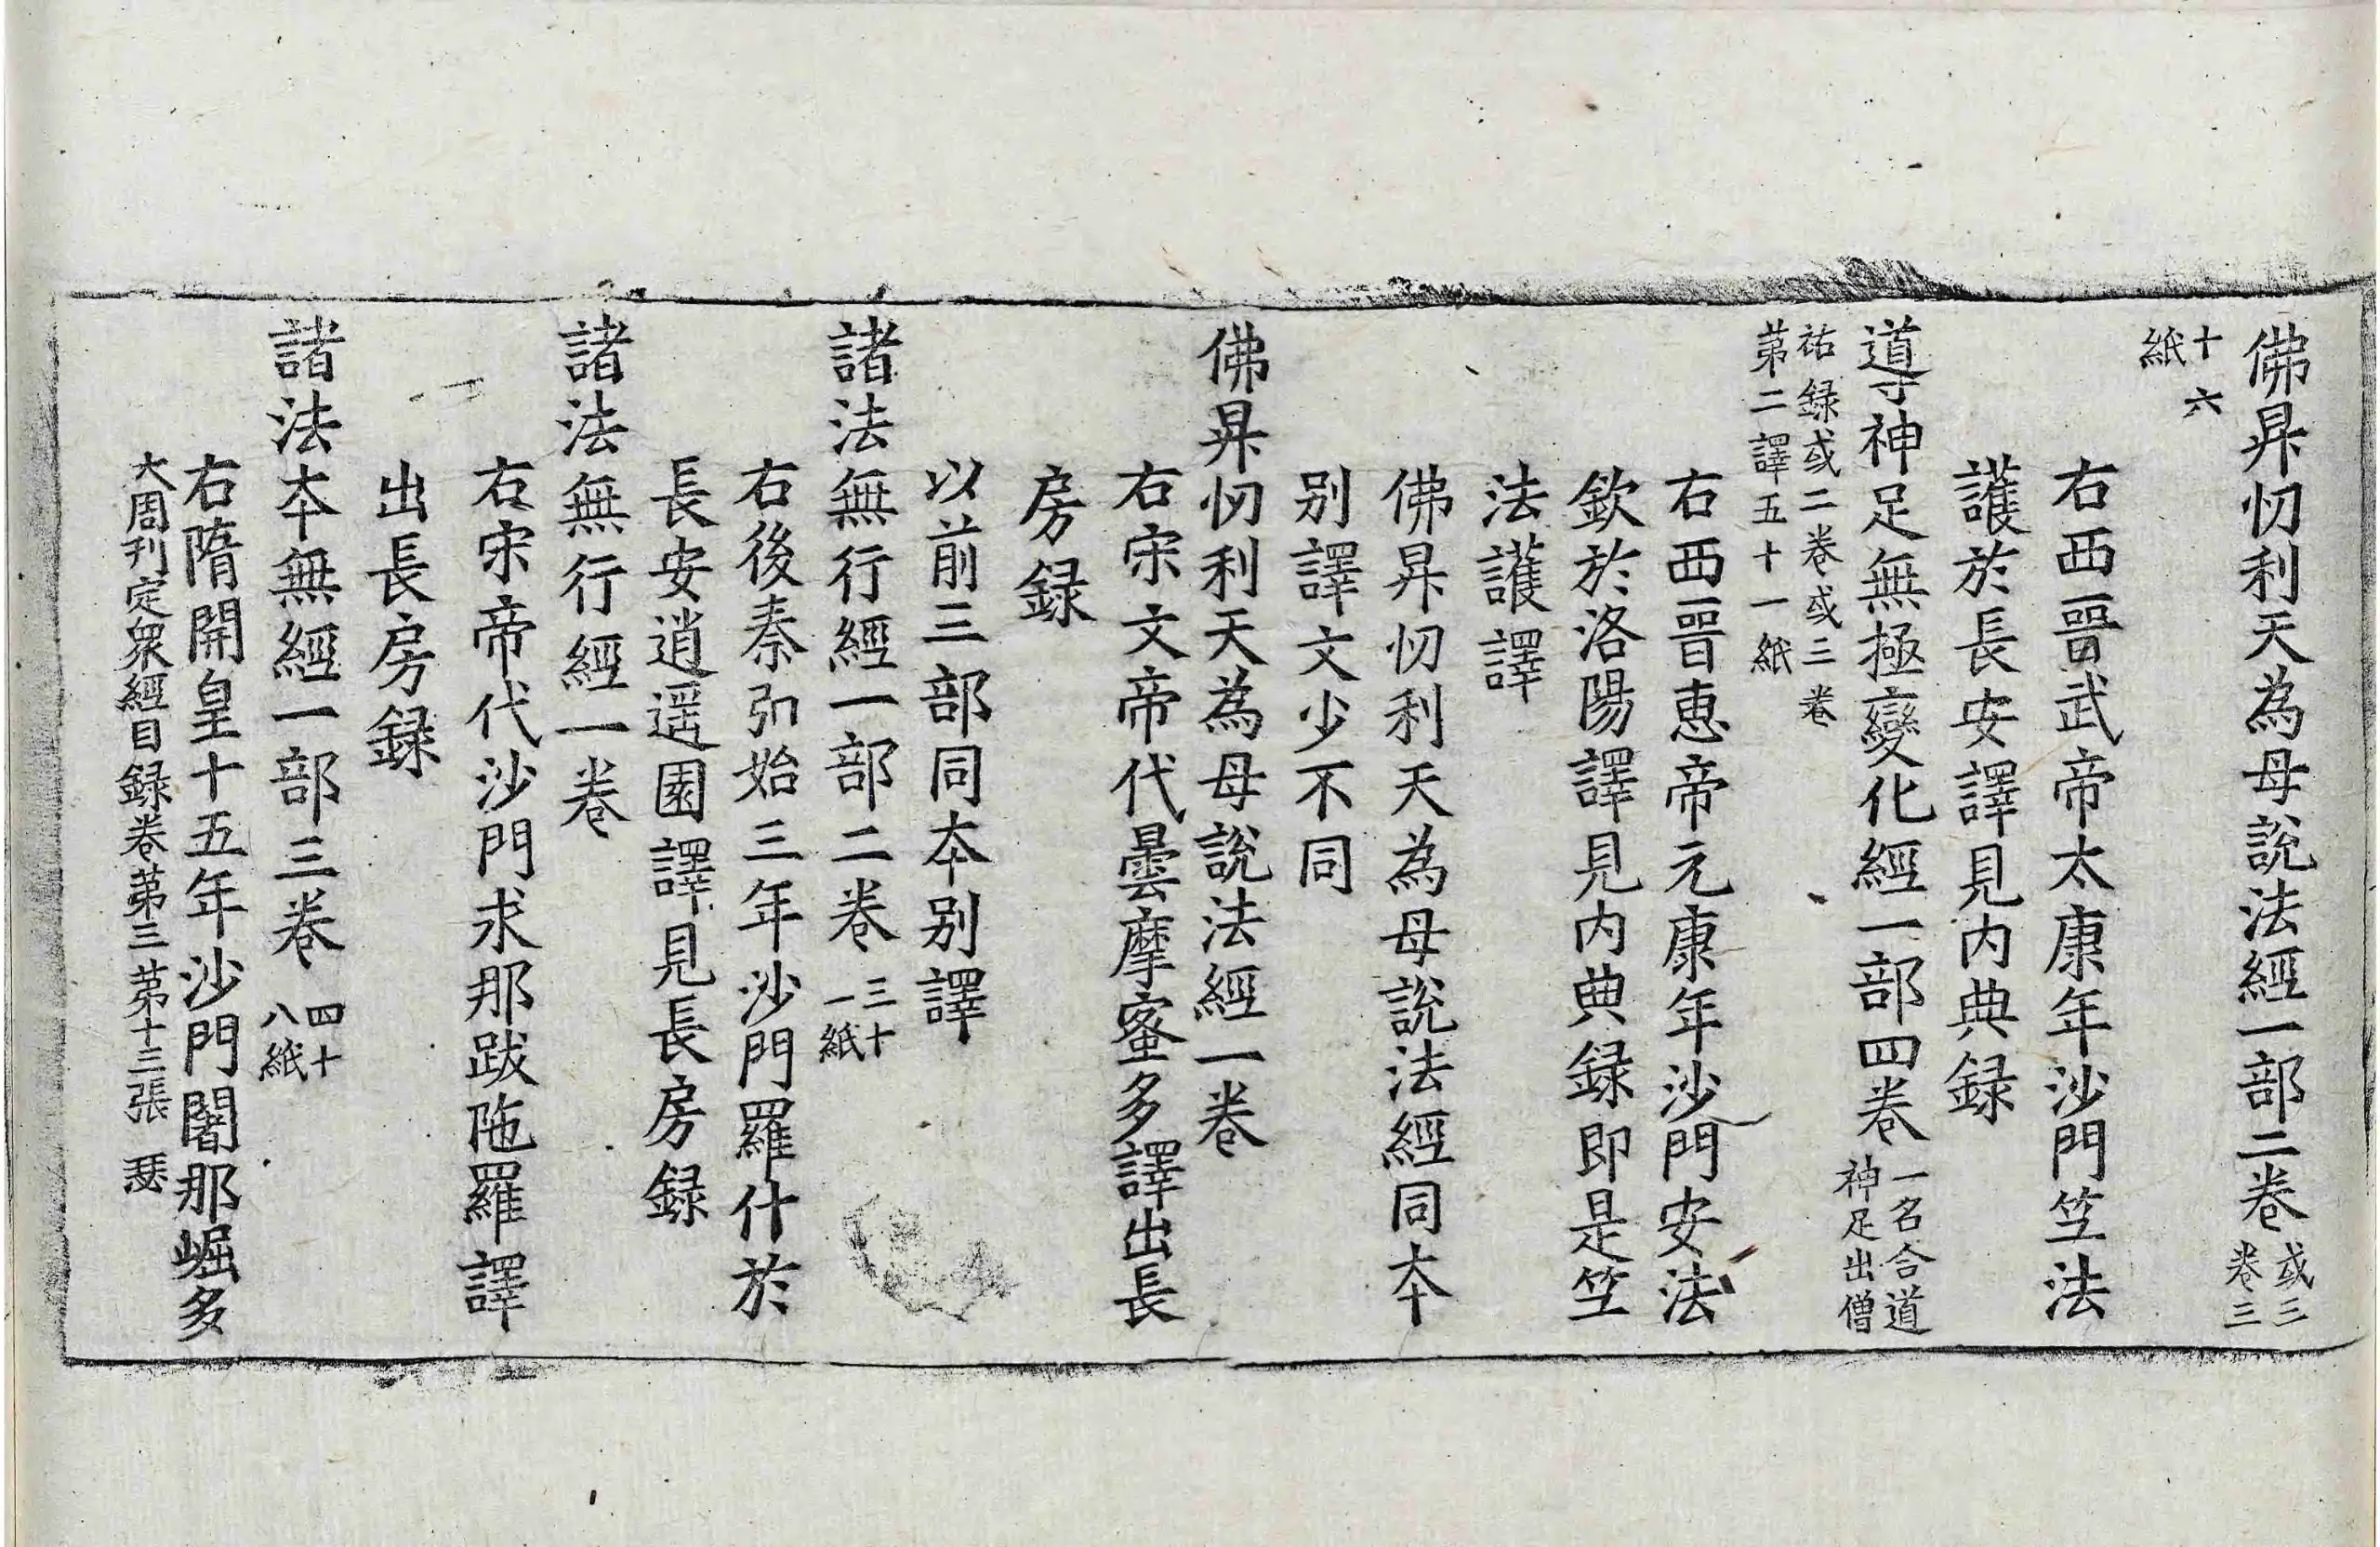 佛昇忉利天為母說法經一部二卷 或三卷三
十六紙
右西晉武帝太康年沙門竺法
護於長安譯見內典録
導神足無極變化經一部四卷 一名合道神足出僧
祐録或二卷或三卷第二譯五十一紙
右西晉惠帝元康年沙門安法
欽於洛陽譯見內典録即是竺
法護譯
佛昇忉利天為母說法經同本
別譯文少不同
佛昇忉利天為母說法經一卷
右宋文帝代曇摩蜜多譯出長
房録
以前三部同本別譯
諸法無行經一部二卷 三十一紙
右後秦弘始三年沙門羅什於
長安逍遥園譯見長房録
諸法無行經一卷
右宋帝代沙門求那跋陁羅譯
出長房録
諸法本無經一部三卷 四十八紙
右隋開皇十五年沙門闍那崛多
大周刊定衆經目録卷第三第十三張